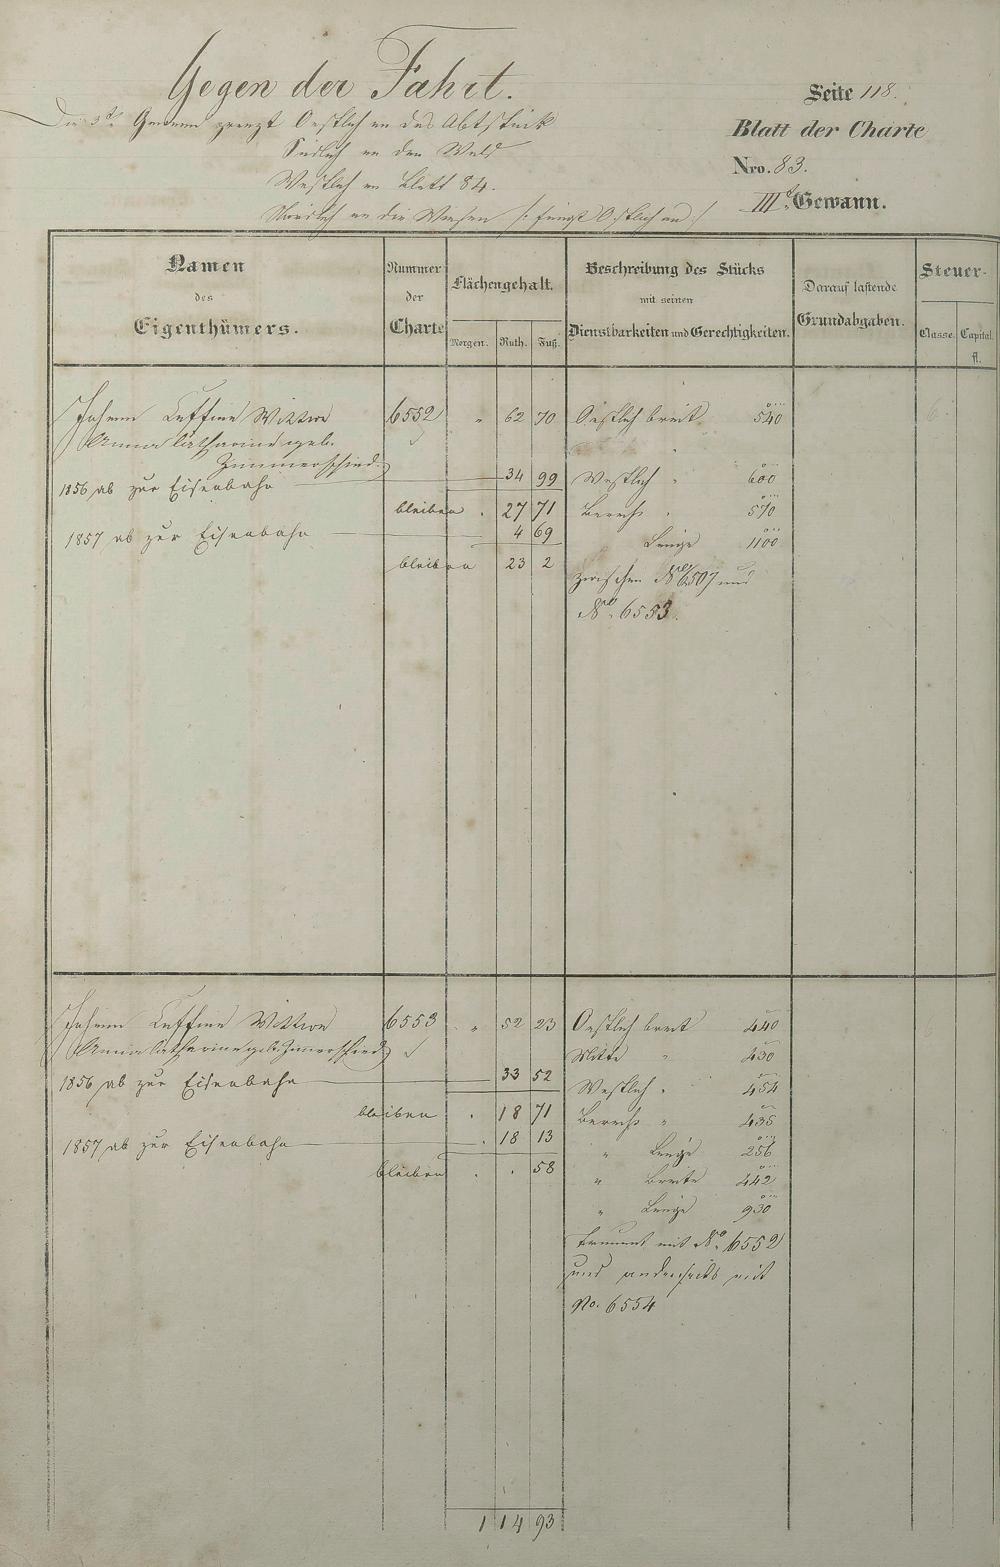 Gegen der Fahrt.
Die 3te Gewann grenzt Oestlich an das Abtstück
Südlich an den Wald
Westlich an Blatt 84.
Nördlich an die Wiesen /: fängt Oestlich an :/
Seite 118.
Blatt der Charte
Nro. 83.
IIIt. Gewann.
Namen
des
Eigenthümers.
Nummer
der
Charte
Flächengehalt.
Morgen. Ruth. Fuß.
Beschreibung des Stücks
mit seinen
Dienstbarkeiten und Gerechtigkeiten.
Darauf lastende
Grundabgaben.
Steuer-
Classe. Capital.
fl.
Johann Wittwe 6552 " 62 70 Oestlich breit 540
Anna Catharina geb.
Zimmerschied
1856 ab zur Eisenbahn 34 99 Westlich " 600
bleiben . 27 71 Berech " 570
1857 ab zur Eisenbahn 4 69
Länge 1100
bleiben 23 2
zwischen No 6507 und
No. 6553.
Johann Wittwe 6553 " 52 23 Oestlich breit 440
Anna Catharina geb. Zimmerschied
Mitte " 430
1856 ab zur Eisenbahn 33 52
Westlich " 454
bleiben . 18 71 Berech " 435
1857 ab zur Eisenbahn . 18 13
" Länge 256
bleiben . . 58 " Breite 442
" Länge 930
mit No. 6552
und anderseits mit
No. 6554
1 14 93